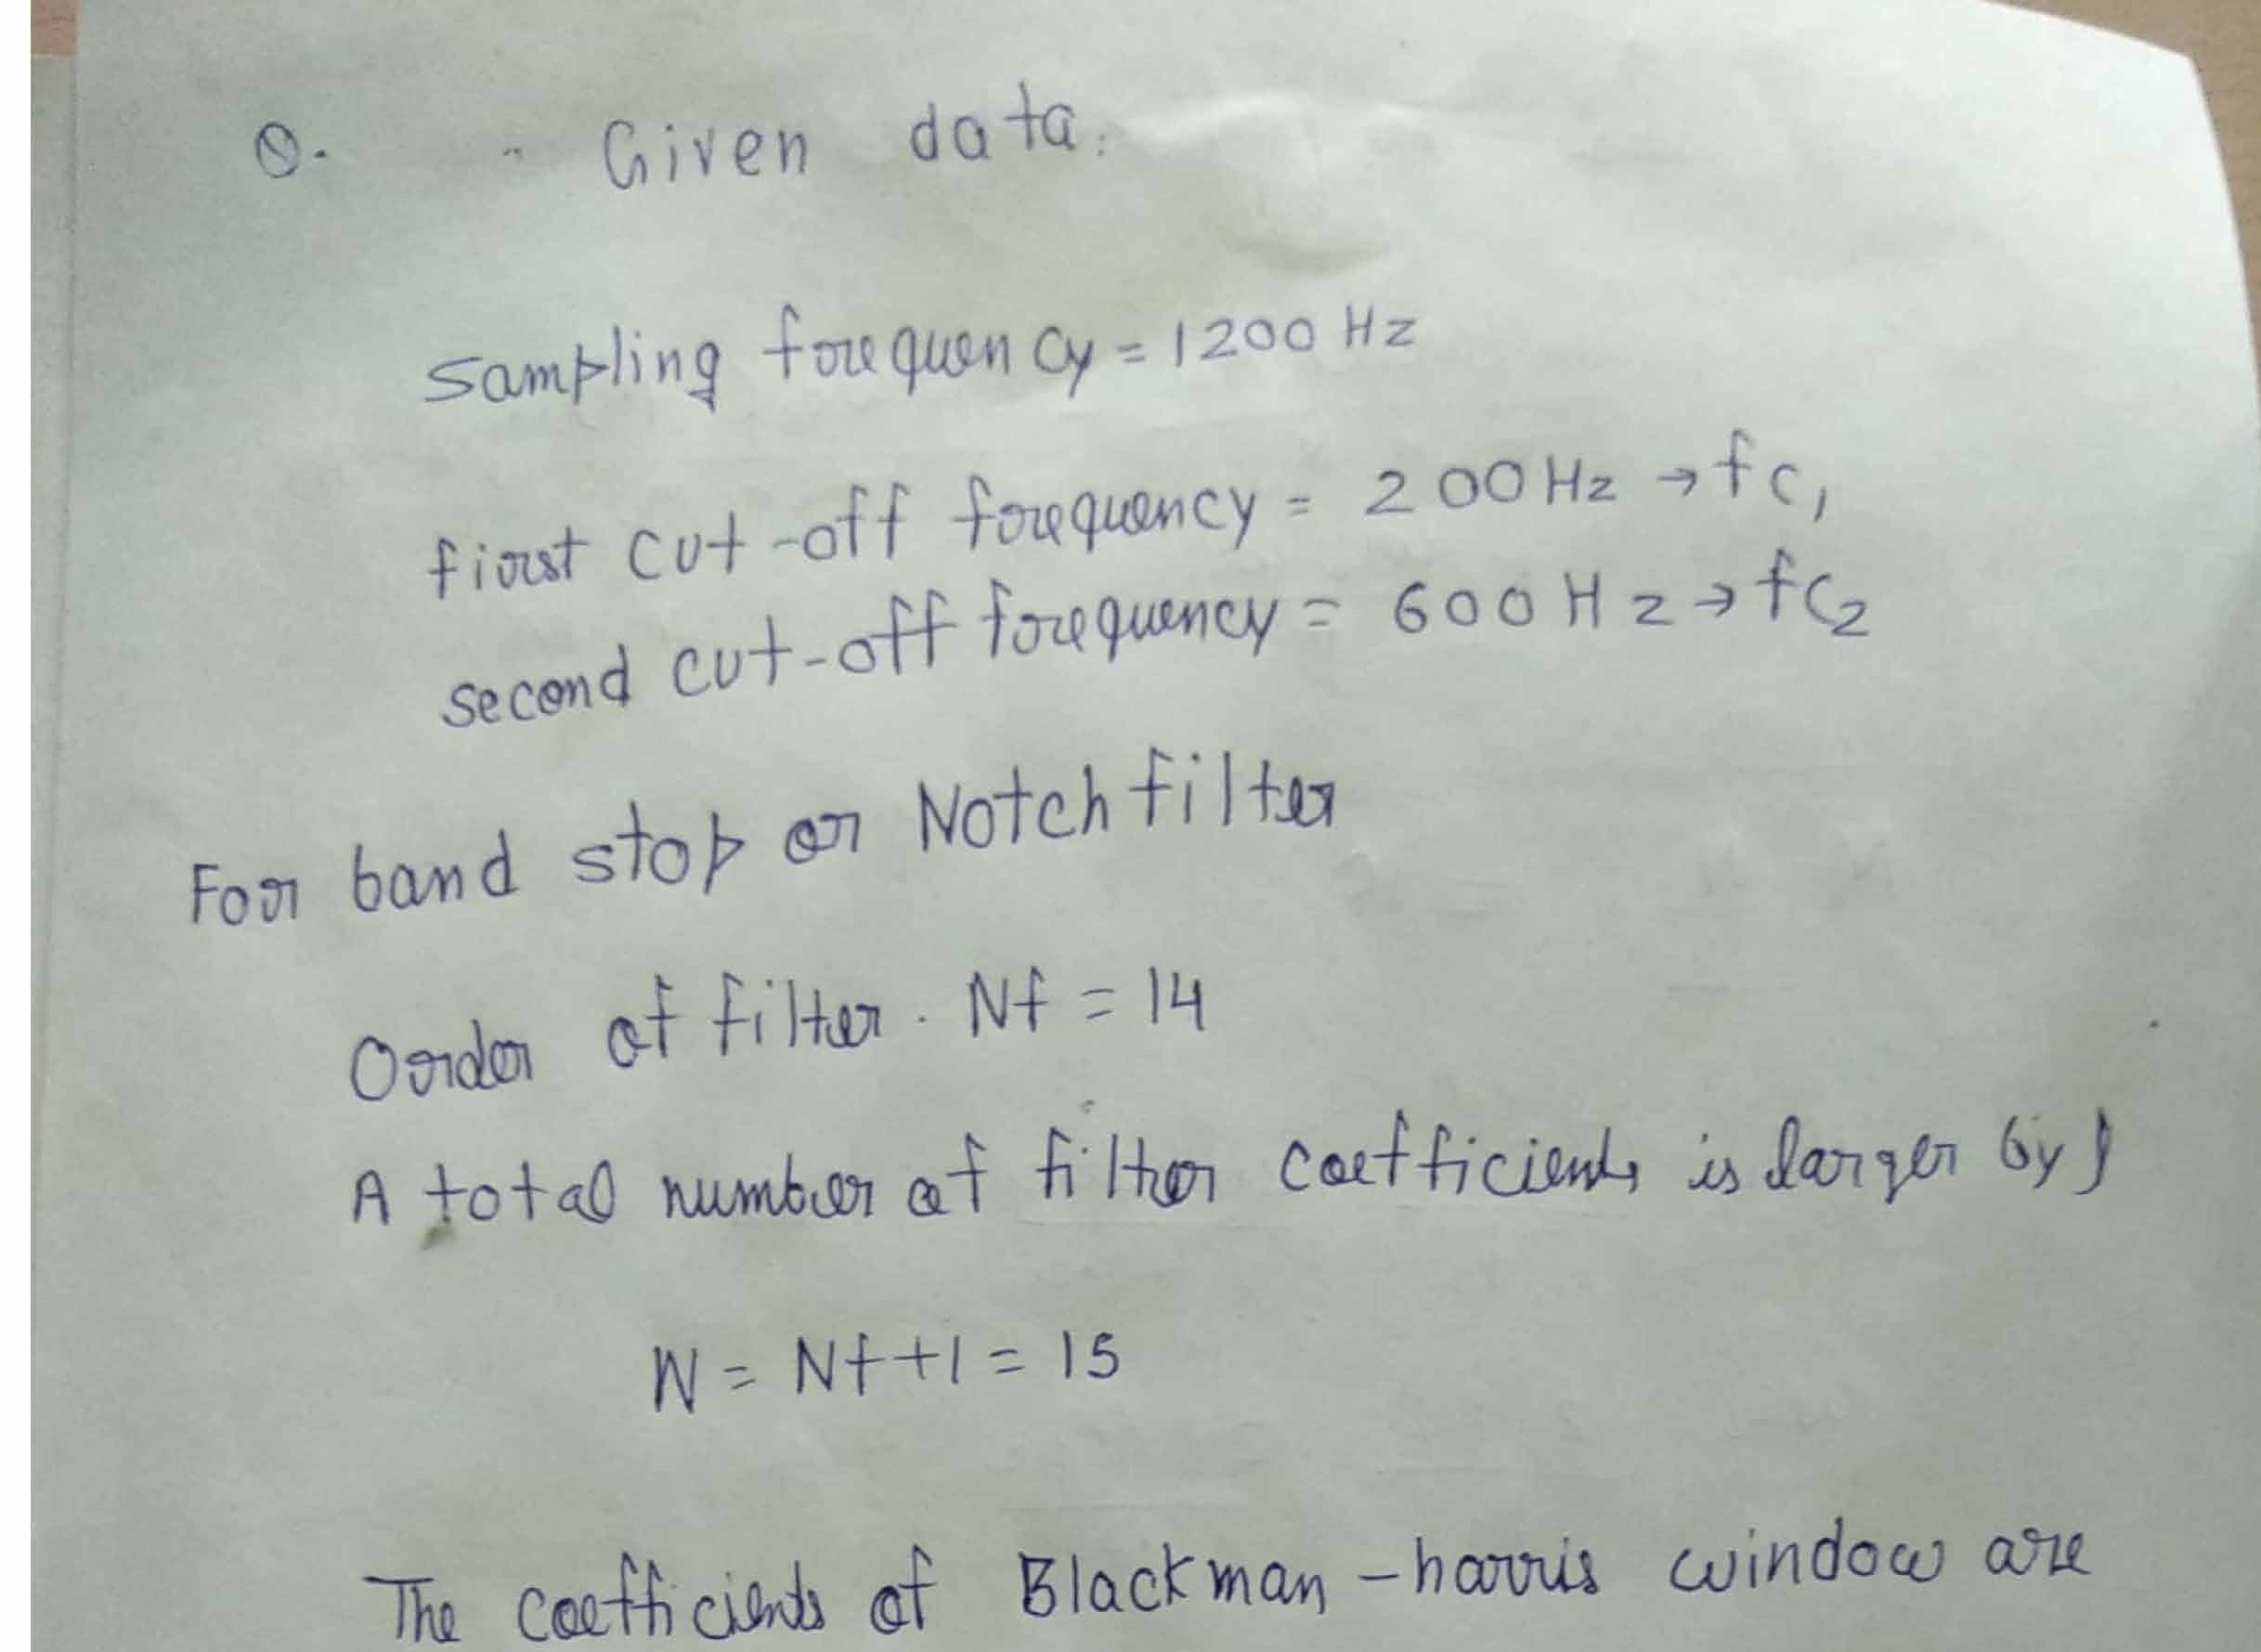 Q. Given data:
Sampling frequency = 1200 Hz
first cut-off frequency = 200 Hz → fc1
second cut-off frequency = 600 Hz → fc2
For band stop or Notch filter
Order of filter. Nf = 14
A total number of filter coefficients is larger by 1
N = Nf+1 = 15
The coefficients of Blackman-harris window are